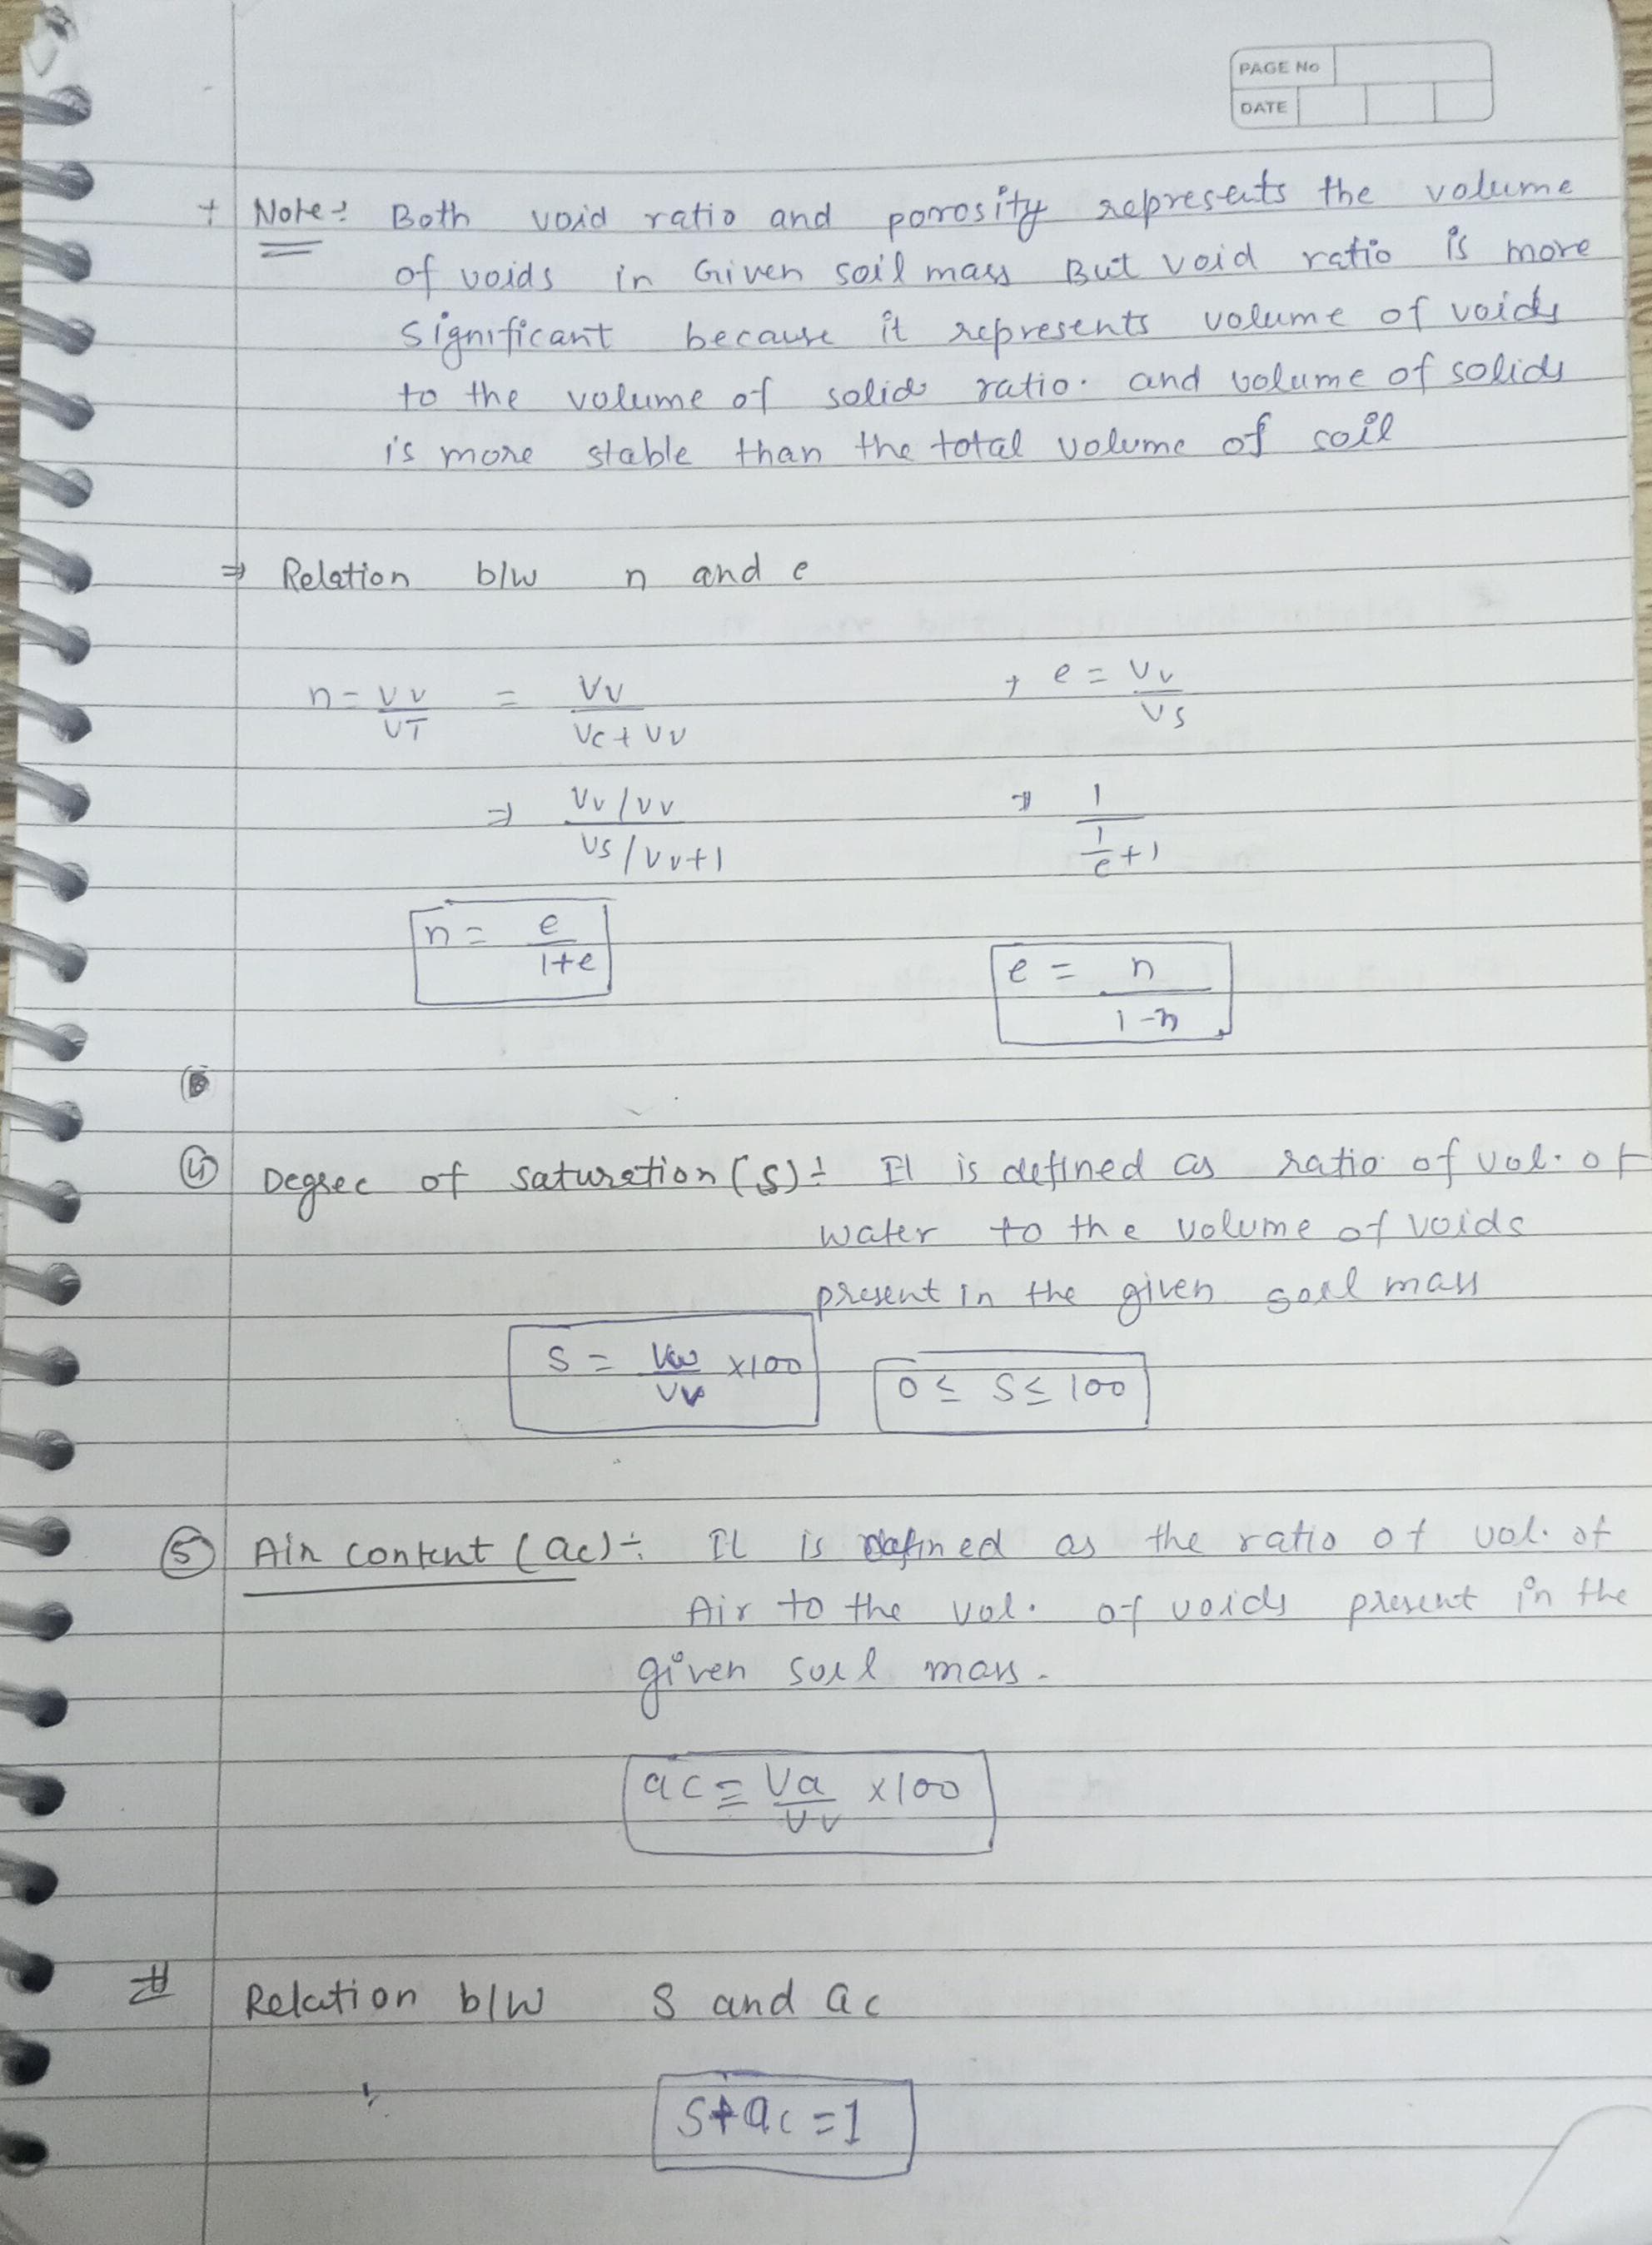 PAGE No
DATE
+ Note:- Both void ratio and porosity represents the volume
of voids in Given soil mass But void ratio is more
significant because it represents volume of voids
to the volume of solids ratio. and volume of solids
is more stable than the total volume of soil
⇒ Relation b/w n and e
n = Vv/VT = Vv/(Vc + Vv) , e = Vv/Vs
⇒ (Vv/Vv)/(Vs/Vv+1) ⇒ 1/(1/e+1)
n = e/(1+e)
e = n/(1-n)
④ Degree of saturation (S) :- It is defined as ratio of vol. of
water to the volume of voids
present in the given soil mass
S = Vw/Vv ×100 0 ≤ S ≤ 100
⑤ Air content (ac) :- It is defined as the ratio of vol. of
Air to the vol. of voids present in the
given soil mass.
ac = Va/Vv ×100
# Relation b/w S and ac
S+ac = 1